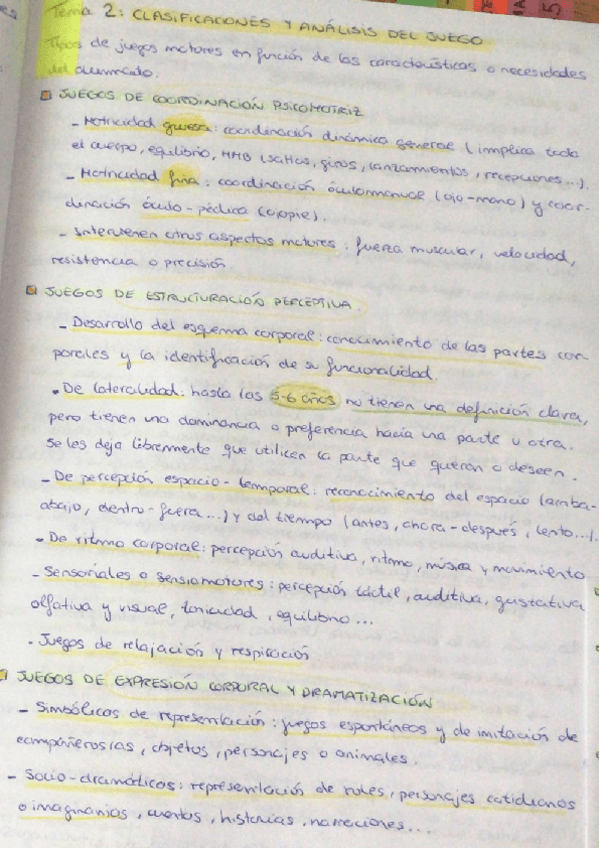 Tema 2: CLASIFICACIONES Y ANÁLISIS DEL JUEGO
Tipos de juegos motores en función de las características o necesidades
del alumnado.
JUEGOS DE COORDINACIÓN PSICOMOTRIZ
- Motricidad gruesa: coordinación dinámica general (implica todo
el cuerpo, equilibrio, HMB (saltos, giros, lanzamientos, recepciones...).
- Motricidad fina: coordinación óculomanual (ojo-mano) y coor-
dinación óculo-pédica (ojopie).
- Intervienen otros aspectos motores: fuerza muscular, velocidad,
resistencia o precisión.
JUEGOS DE ESTRUCTURACIÓN PERCEPTIVA.
- Desarrollo del esquema corporal: conocimiento de las partes cor-
porales y la identificación de su funcionalidad.
• De lateralidad: hasta los 5-6 años no tienen una definición clara,
pero tienen una dominancia o preferencia hacia una parte u otra.
Se les deja libremente que utilicen la parte que quieran o deseen.
- De percepción espacio-temporal: reconocimiento del espacio (arriba-
abajo, dentro-fuera...) y del tiempo (antes, ahora-después, lento...).
- De ritmo corporal: percepción auditiva, ritmo, música y movimiento
- Sensoriales o sensiomotores: percepción táctil, auditiva, gustativa
olfativa y visual, tonicidad, equilibrio...
- Juegos de relajación y respiración
JUEGOS DE EXPRESIÓN CORPORAL Y DRAMATIZACIÓN
- Simbólicos de representación: juegos espontáneos y de imitación de
compañeros/as, objetos, personajes o animales.
- Socio-dramáticos: representación de roles, personajes cotidianos
o imaginarios, cuentos, historias, narraciones...